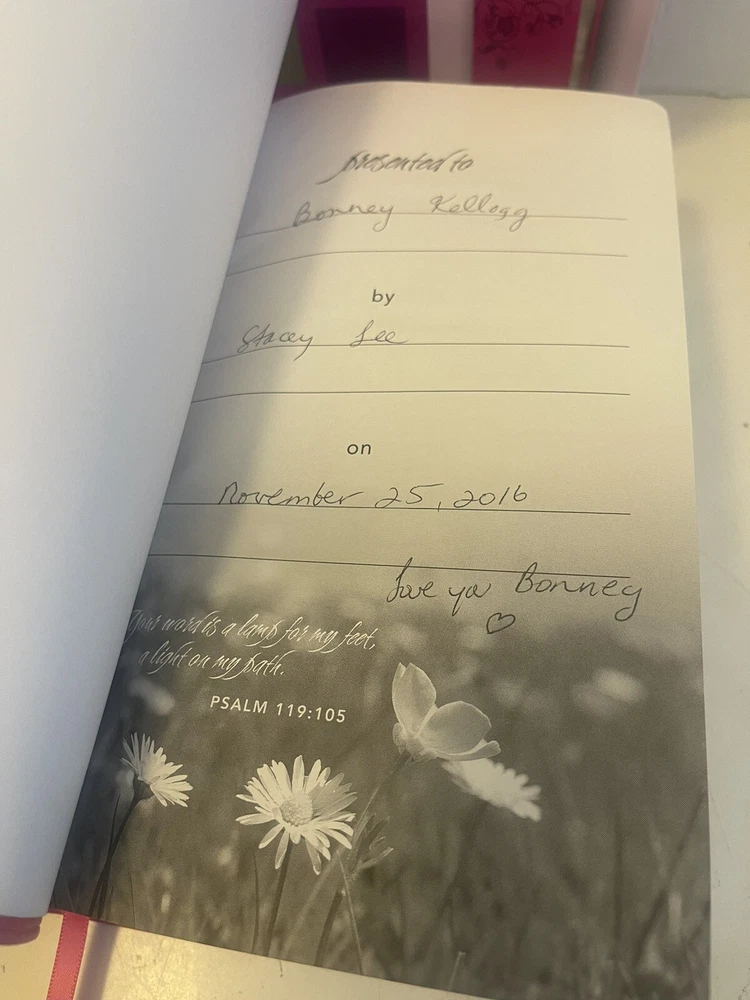 presented to
Bonney Kellogg
by
Stacey Lee
on
November 25, 2016
Love you Bonney
♡
Your word is a lamp for my feet,
a light on my path.
PSALM 119:105